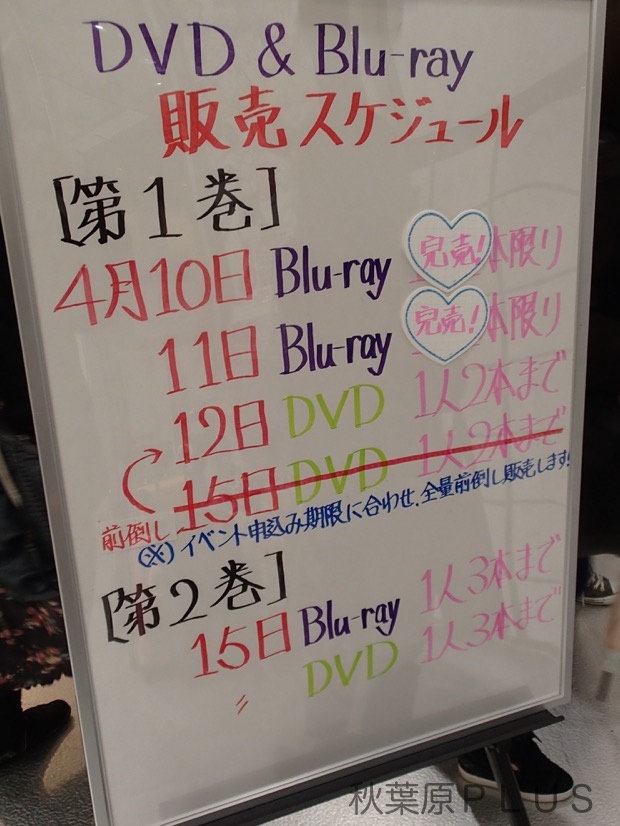 DVD & Blu-ray
販売スケジュール
[第1巻]
4月10日 Blu-ray 完売! 本限り
11日 Blu-ray 完売! 本限り
12日 DVD 1人2本まで
15日 DVD 1人2本まで
前倒し
(※)イベント申込み期限に合わせ、全量前倒し販売します!
[第2巻]
15日 Blu-ray 1人3本まで
〃 DVD 1人3本まで
秋葉原PLUS